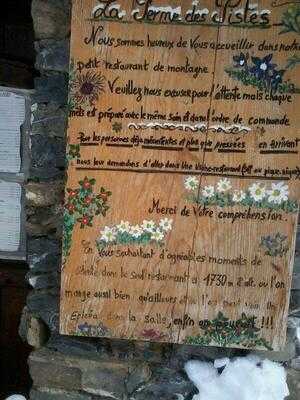 La Ferme des Pistes
Nous sommes heureux de Vous accueillir dans notre
petit restaurant de montagne.
Veuillez nous excuser pour l'attente mais chaque
mets est préparé avec le même soin et dans l'ordre de commande
Pour les personnes déjà mécontentes et plus que pressées en arrivant
nous leur demandons d'aller dans un autre restaurant
Merci de Votre compréhension.
En Vous souhaitant d'agréables moments de
détente dans le seul restaurant à 1730 m d'alt. où l'on
mange aussi bien qu'ailleurs et où l'on peut voir un
Epicéa dans la salle, enfin on pouvait !!!